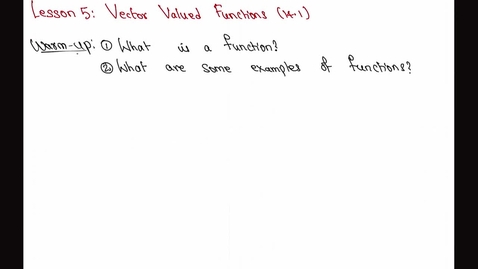 Lesson 5: Vector Valued Functions (14.1)
Warm-up: ① What is a function?
② What are some examples of functions?